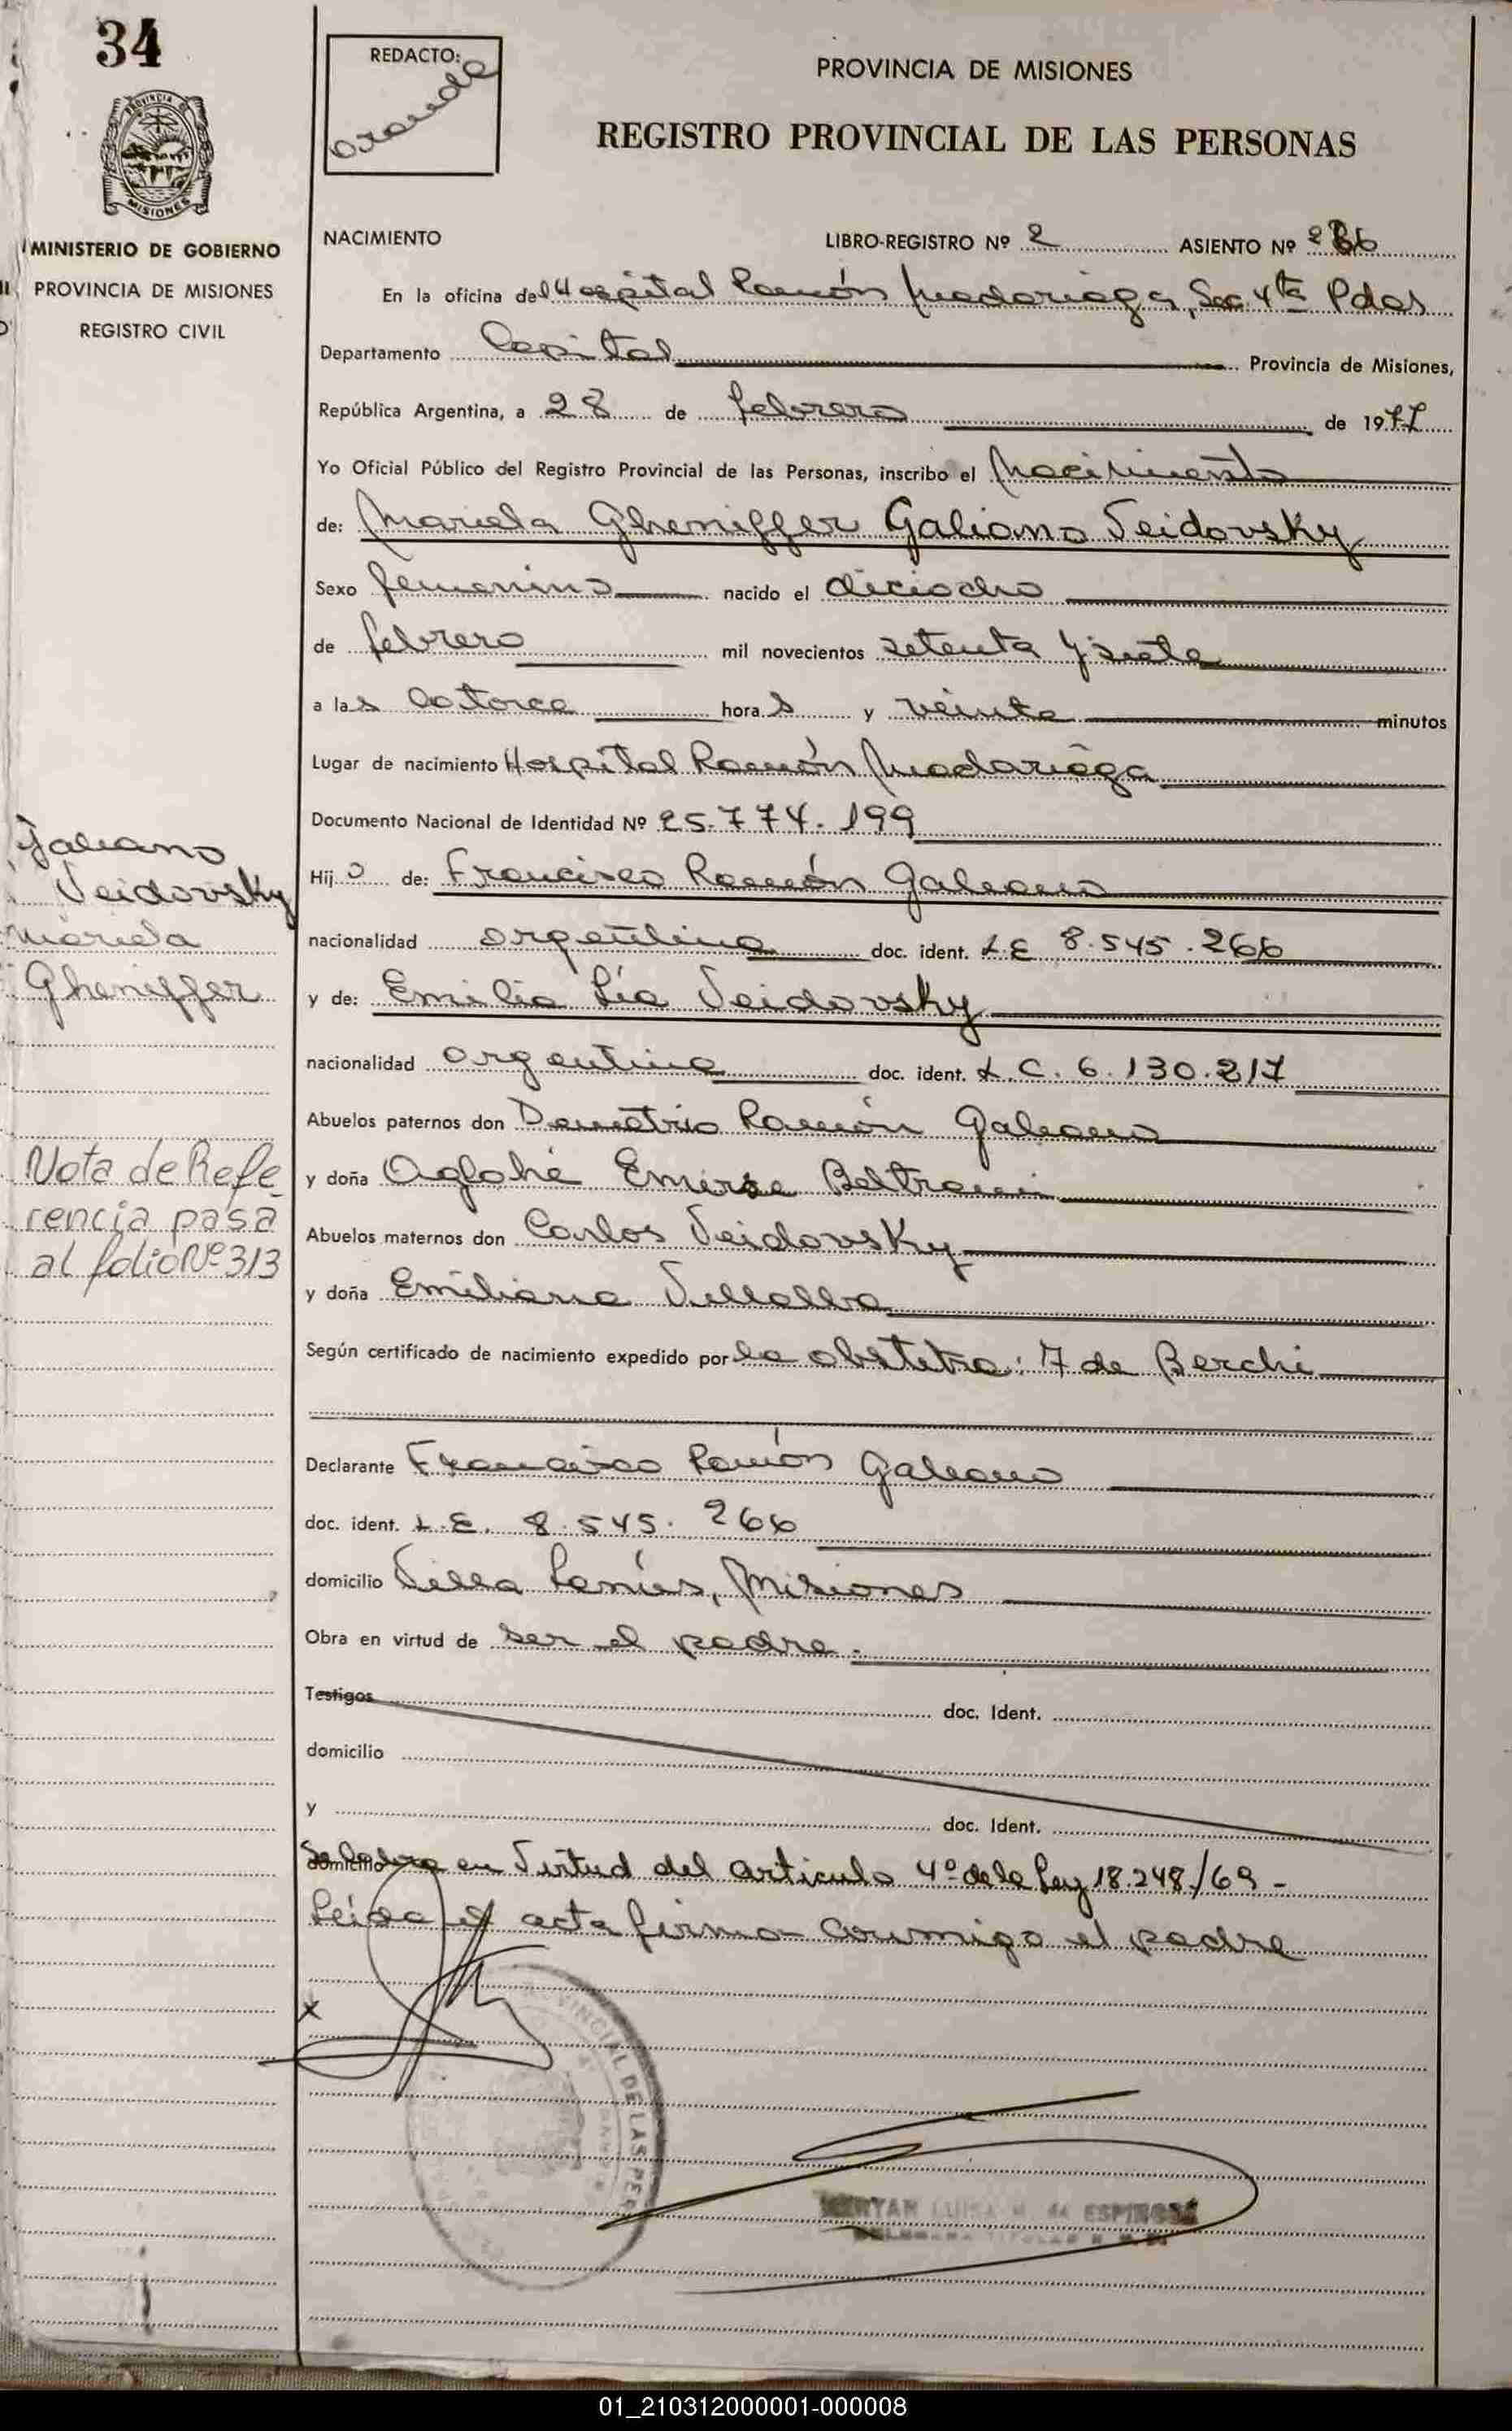 34
REDACTO:
PROVINCIA DE MISIONES
REGISTRO PROVINCIAL DE LAS PERSONAS
PROVINCIA DE
MISIONES
MINISTERIO DE GOBIERNO
PROVINCIA DE MISIONES
REGISTRO CIVIL
NACIMIENTO LIBRO-REGISTRO Nº 2 ASIENTO Nº
En la oficina del Hospital Ramón Madariaga, Sec. 4ta Pdas
Departamento Capital Provincia de Misiones,
República Argentina, a 28 de febrero de 1977
Yo Oficial Público del Registro Provincial de las Personas, inscribo el Nacimiento
de: Mariela Gheniffer Galiano Veidovsky
Sexo femenino nacido el dieciocho
de febrero mil novecientos setenta y siete
a las catorce horas y veinte minutos
Lugar de nacimiento Hospital Ramón Madariaga
Documento Nacional de Identidad Nº 25.774.199
Hij o de: Francisco Ramón Galeano
nacionalidad argentina doc. ident. L.E 8.545.266
y de: Emilia Lía Veidovsky
nacionalidad argentina doc. ident. L.C. 6.130.217
Abuelos paternos don Demetrio Ramón Galeano
y doña Beltrami
Abuelos maternos don Carlos Veidovsky
y doña Emiliana Villalba
Según certificado de nacimiento expedido por la obstetra: de Berchi
Declarante Francisco Ramón Galeano
doc. ident. L.E. 8.545.266
domicilio Villa Lanús, Misiones
Obra en virtud de ser el padre.
Testigos doc. Ident.
domicilio
y doc. Ident.
domicilio
Se labra en Virtud del articulo 4º de la Ley 18.248/69 -
Leída el acta firma conmigo el padre
x
Galeano
Veidovsky
Mariela
Gheniffer
Nota de Refe
rencia pasa
al folio Nº 313
VINCIAL DE LAS PER
LUISA M. de ESPINOSA
01_210312000001-000008